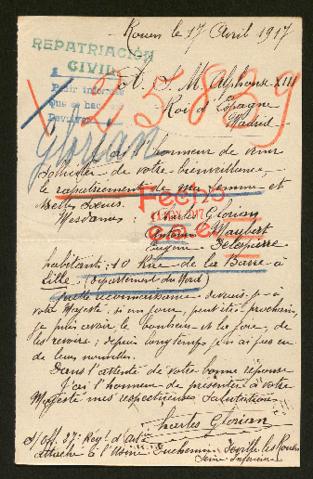 Rouen le 17 Avril 1917
REPATRIACIÓN
CIVIL
A. S. M. Alphonse XIII
Roi d'Espagne
Madrid
Pedir informes
Que se
25889
Glorian
l'honneur de venir
solliciter de votre bienveillance,
le rapatriement de ma femme et
Belles Sœurs.
Mesdames: Charles Glorian
Fecho
Maubert
Eugène Delespierre
habitants: 10 Rue de la Barre à
Lille (Département du Nord)
Quelle reconnaissance devrais-je à
votre Majesté, si un jour, peut être prochain,
je puis avoir le bonheur et la joie, de
les revoir; depuis longtemps je n'ai pas eu
de leurs nouvelles.
Dans l'attente de votre bonne réponse
J'ai l'honneur de présenter à votre
Majesté mes respectueuses salutations
Charles Glorian
s/Off. 27e Regt d'Artie
attaché à l'Usine